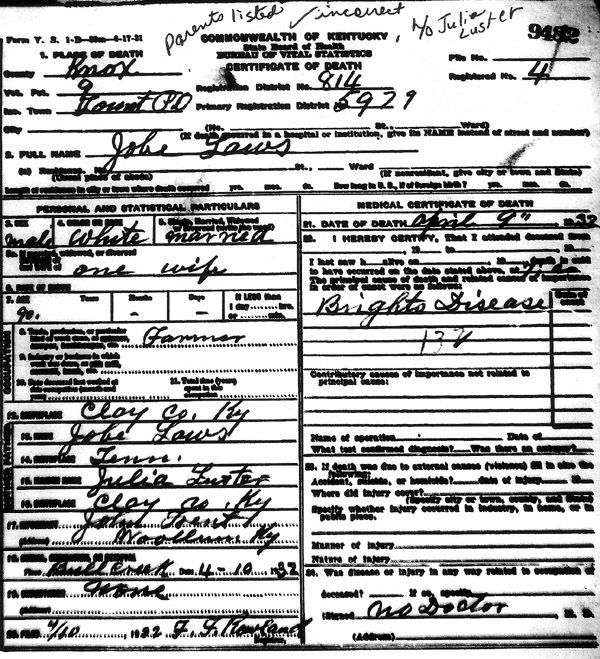 Parents listed / incorrect, % Julia
Luster
Form V. S. 1-D
COMMONWEALTH OF KENTUCKY
State Board of Health
BUREAU OF VITAL STATISTICS
CERTIFICATE OF DEATH
1. PLACE OF DEATH
County Knox
File No.
Registered No. 4
Vot. Pct. 9
Registration District No. 814
Inc. Town
Primary Registration District 5929
City (No. St., Ward)
(If death occurred in a hospital or institution, give its NAME instead of street and number)
2. FULL NAME Jobe Laws
(a) Residence St., Ward
(Usual place of abode) (If nonresident, give city or town and State)
Length of residence in city or town where death occurred yrs. mos. ds. How long in U. S., if of foreign birth? yrs. mos. ds.
PERSONAL AND STATISTICAL PARTICULARS
male White married
one wife
7. AGE Years Months Days If LESS than
90. - - 1 day hrs.
or min.
Farmer
11. Total time (years)
spent in this
occupation
12. BIRTHPLACE Clay Co. Ky
13. NAME Jobe Laws
14. BIRTHPLACE Tenn.
15. MAIDEN NAME Julia Luster
16. BIRTHPLACE Clay co. Ky
17. INFORMANT John
(Address) Woollum, Ky
Place Bull Creek Date 4-10 1932
19. None
(Address)
20. FILED 4/10 1932 F. F. Rowland
MEDICAL CERTIFICATE OF DEATH
21. DATE OF DEATH April 9" 1932
22. I HEREBY CERTIFY, That I attended deceased from
I last saw h alive on
to have occurred on the date stated above, at
The principal cause of death and related causes of importance
in order of onset were as follows:
Brights Disease
132
Contributory causes of importance not related to
principal cause:
Name of operation Date of
What test confirmed diagnosis? Was there an autopsy?
23. If death was due to external causes (violence) fill in also the
following:
Accident, suicide, or homicide? date of injury
Where did injury occur?
(Specify city or town, county, and State)
Specify whether injury occurred in industry, in home, or in
public place.
Manner of injury
Nature of injury
24. Was disease or injury in any way related to occupation of
deceased? If so, specify
(Signed) No Doctor
(Address)